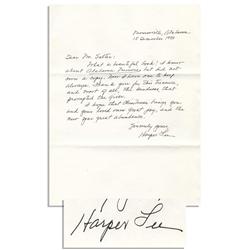 Monroeville, Alabama
15 December 1990
Dear Mr. Salter:
What a beautiful book! I knew
about Alabama Treasures but did not
own a copy. Now I have one to keep
always. Thank you for this treasure,
and most of all, the kindness that
prompted the giver.
I hope that Christmas brings you
and your loved ones great joy, and the
new year great abundance.
Sincerely yours,
Harper Lee
Harper Lee